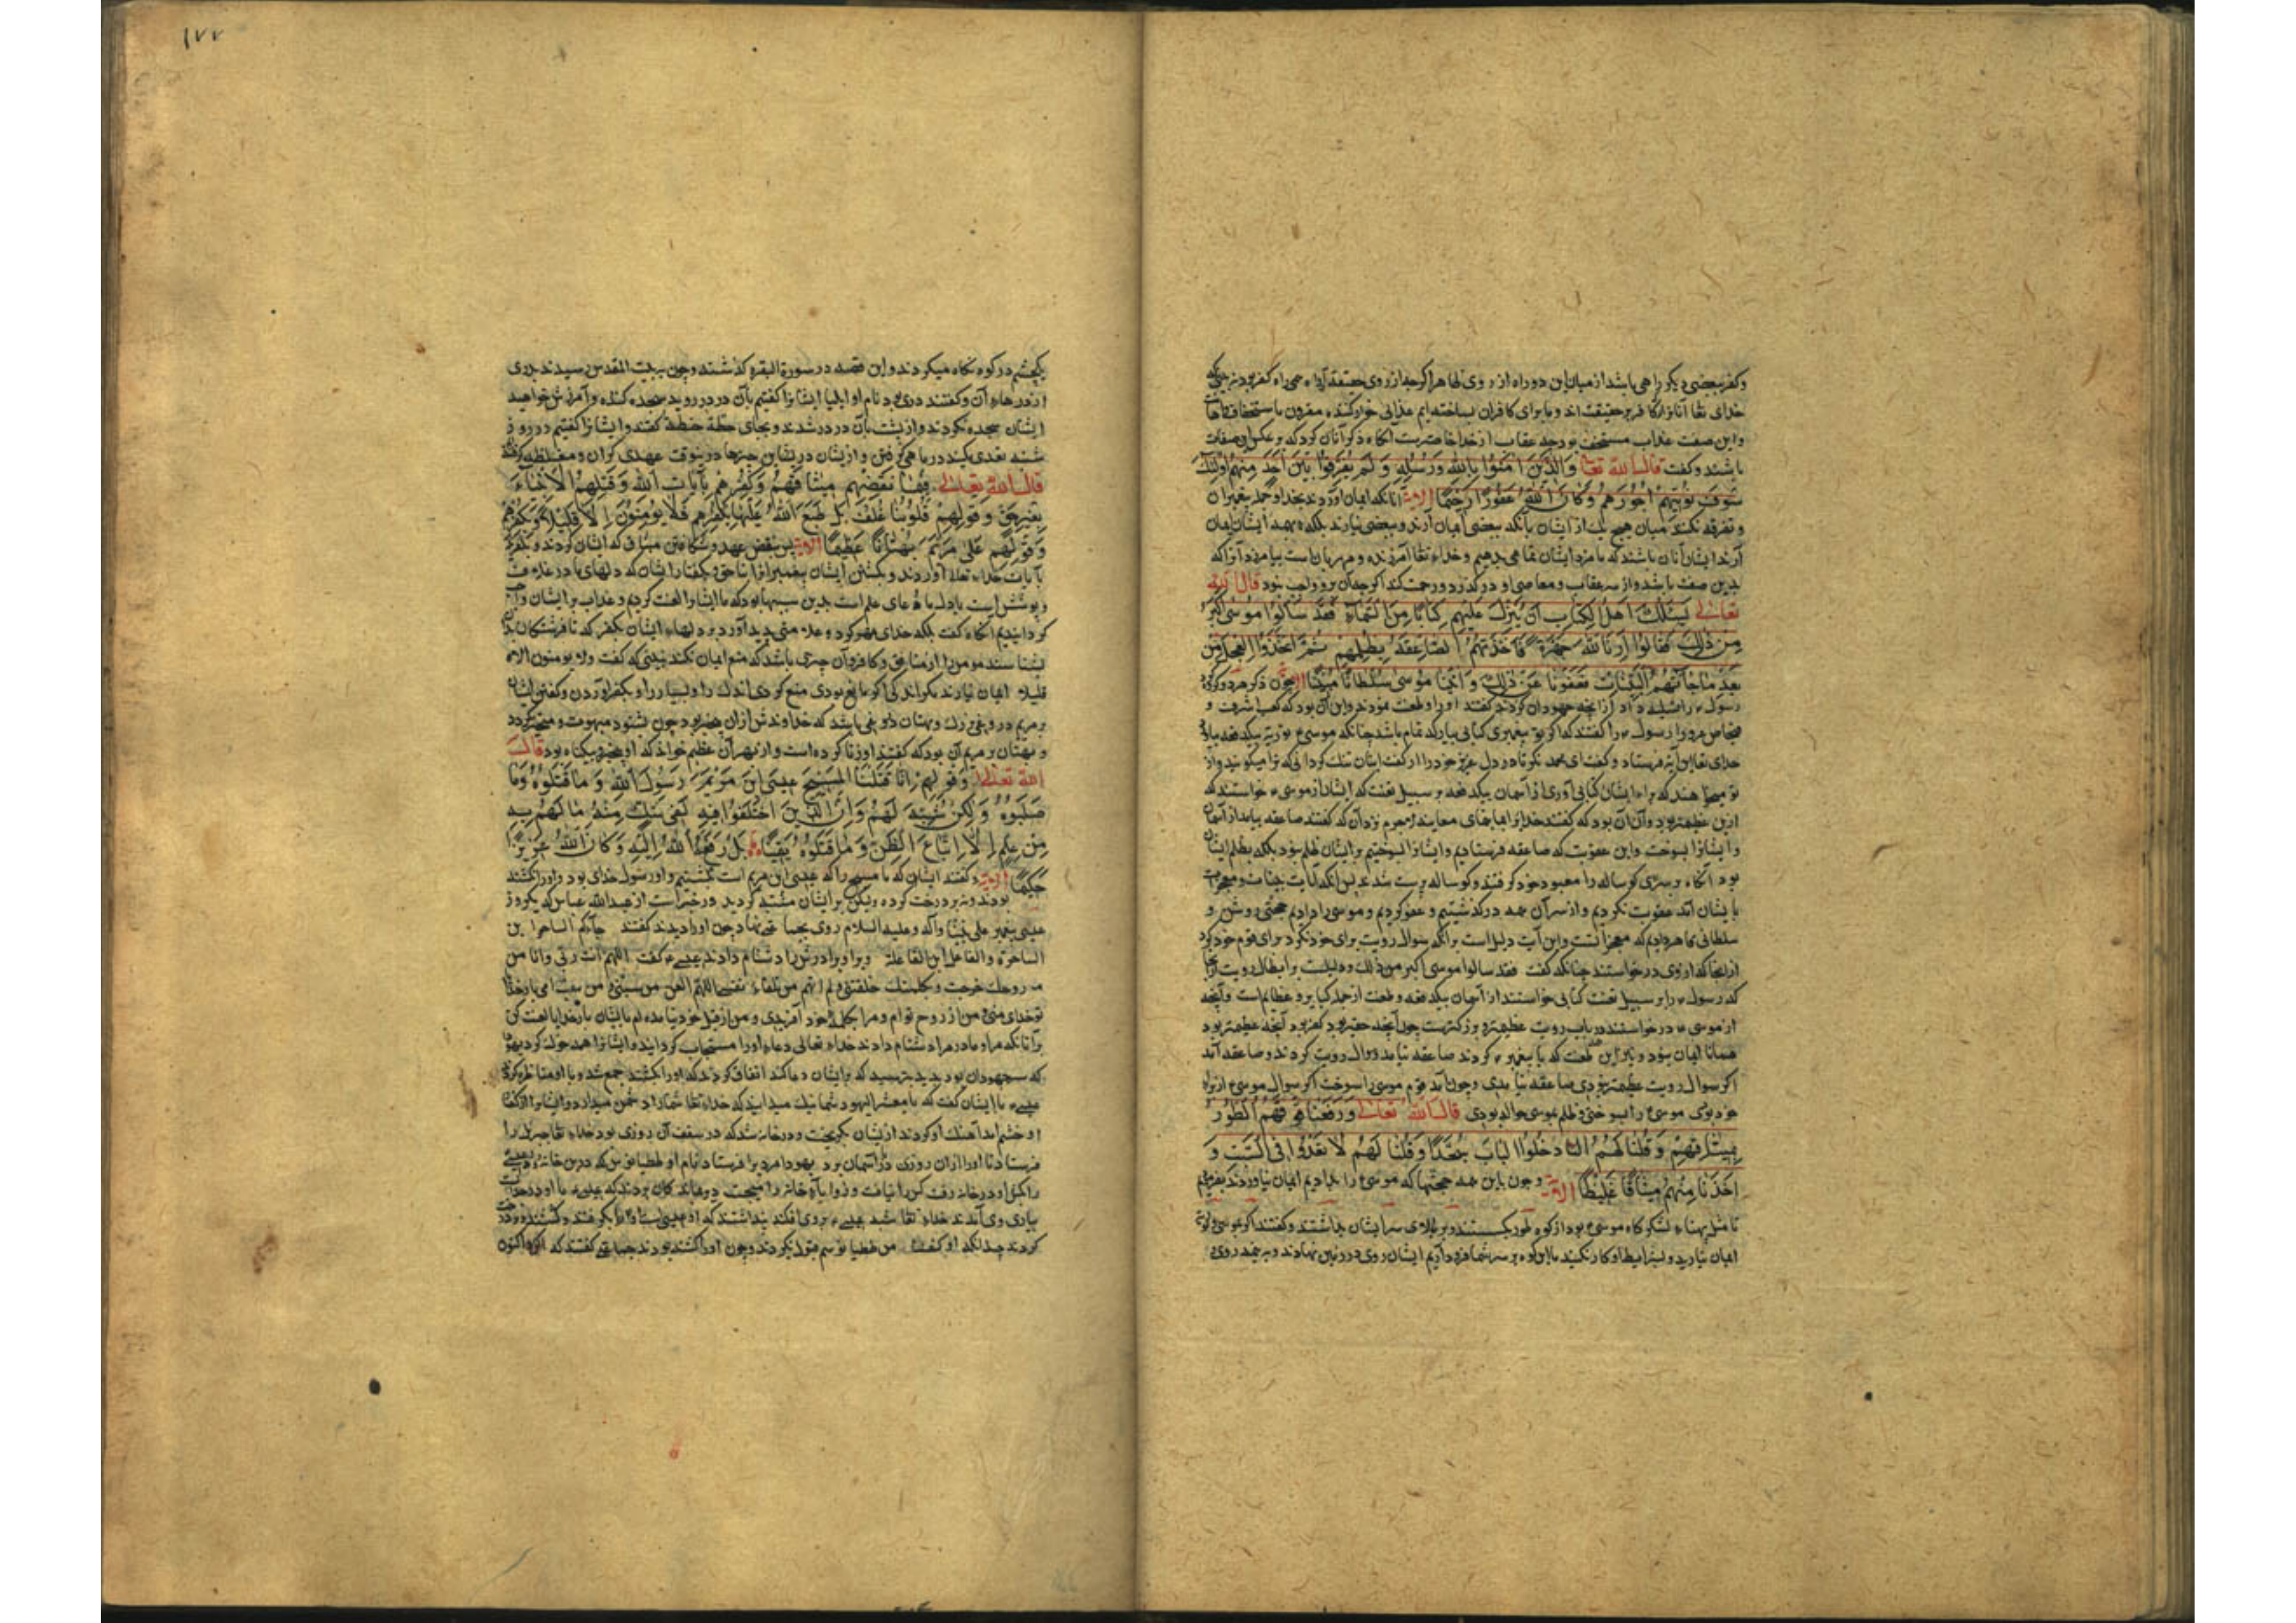 وکفر ببعضی دیکر راهی باشد از میان این دو راه از روی ظاهر اکرچه از روی حقیقت آن راه همی راه کفر بود
خدای تعا آنانرا کافر بحقیقت اند و ما برای کافران بساخته ایم عذابی خوار کننده مقرون با استخفاف
واین صفت عذاب مستحق بود چه عقاب از خدا آنکاه ذکر آنان کرد که بر عکس این صفات
باشند وکفت قال الله تعا وَالَّذینَ اٰمَنُوا بِاللهِ وَرُسُلِهِ وَلَمْ یُفَرِّقُوا بَیْنَ اَحَدٍ مِنْهُمْ اُولٰئِكَ
سَوْفَ نُؤْتِیهِمْ اُجُورَهُمْ وَکَانَ اللهُ غَفُورًا رَحیمًا الآیة آنانکه ایمان آوردند بخدا وجمله پیغمبران
و تفرقه نکنند میان هیچ یك از ایشان بآنکه ببعضی ایمان آرند و ببعضی نیارند بلکه بهمه ایشان ایمان
آرند ایشان آنان باشند که ما مزد ایشان تمامی بدهیم و خدای تعا آمرزنده و مهربان است بیامرزد آنرا که
بدین صفت باشد و از سر عقاب و معاصی او در کذرد و رحمت کند اکرچه آن برو واجب نبود قال الله
تعالی یَسْئَلُكَ اَهْلُ الْکِتَابِ اَنْ تُنَزِّلَ عَلَیْهِمْ کِتَابًا مِنَ السَّمَاءِ فَقَدْ سَاَلُوا مُوسٰی اَکْبَرَ
مِنْ ذٰلِكَ فَقَالُوا اَرِنَا اللهَ جَهْرَةً فَاَخَذَتْهُمُ الصَّاعِقَةُ بِظُلْمِهِمْ ثُمَّ اتَّخَذُوا الْعِجْلَ مِنْ
بَعْدِ مَا جَاءَتْهُمُ الْبَیِّنَاتُ فَعَفَوْنَا عَنْ ذٰلِكَ وَاٰتَیْنَا مُوسٰی سُلْطَانًا مُبِینًا الآیة چون ذکر هر دو کروه
رسول را از آنچه جهودان کردند کفتند او را و طعن نمودند و این آن بود که کعب اشرف و
رسول را کفتند که اکر تو پیغمبری کتابی بیار که تمام باشد چنانکه موسی توریة بیکدفعه بیاورد
خدای تعا این آیة فرستاد و کفت ای محمد نکر تا در دل عزیز خود را از کفت ایشان تنك نکردانی که ترا میکویند و از
تو میخواهند که برای ایشان کتابی آوری از آسمان بیکدفعه بر سبیل تعنت که ایشان از موسی خواستند که
ازین عظیمتر بود و آن آن بود که کفتند خدا را بما نمای معاینه لاجرم نزد آن که کفتند صاعقه بیامد از آسمان
و ایشانرا بسوخت و این عقوبت که صاعقه فرستادیم و ایشانرا بسوختیم بر ایشان ظلم نبود بلکه بظلم ایشان
بود آنکاه بر سری کوساله را معبود خود کرفتند و کوساله پرست شدند پس از آنکه آیات بینات و معجزات
بایشان آمد عقوبت نکردیم و از سر آن همه در کذشتیم و عفو کردیم و موسی را دادیم حجتی روشن و
سلطانی ظاهر دادیم که معجزاتست و این آیت دلیل است بر آنکه سوال رویت برای خود نکرد برای قوم خود کرد
از آنجا که از وی درخواستند چنانکه کفت فقد سالوا موسی اکبر من ذلك و دلیلست بر ابطال رویت
که رسول را بر سبیل تعنت کتابی خواستند از آسمان بیکدفعه و طعنت از جمله کبایر و عظائم است وآنچه
از موسی درخواستند در باب رویت عظیمتر و بزرکترست چون آنچه حقیر بود کفر بود آنچه عظیمتر بود
همانا ایمان نبود و بر این طعنت که با پیغمبر کردند صاعقه نیامد و بر سوال رویت کردند و صاعقه آمد
اکر سوال رویت عظیمتر نبودی صاعقه نیامدی و چون آمد قوم موسی را سوخت اکر سوال موسی از برای
خود بودی موسی را بسوختی و ظلم بموسی حواله بودی قال الله تعالی وَرَفَعْنَا فَوْقَهُمُ الطُّورَ
بِمِیثَاقِهِمْ وَقُلْنَا لَهُمُ ادْخُلُوا الْبَابَ سُجَّدًا وَقُلْنَا لَهُمْ لَا تَعْدُوا فِی السَّبْتِ وَ
اَخَذْنَا مِنْهُمْ مِیثَاقًا غَلِیظًا الآیة و چون باین همه حجتها که موسی را بدادیم ایمان نیاوردند بفرمودیم
تا مثل پهناء لشکرکاه موسی بود از کوه طور بکسستند و بر بالای سر ایشان بداشتند و کفتند اکر بموسی و توریة
ایمان نیارید و بشرایط او کار نکنید ما این کوه بر سر شما فرود آریم ایشان روی در زمین نهادند و به نیمه روی
۱۷۷
بکچشم در کوه نکاه میکردند و این قصه در سورة البقره کذشته و چون به بیت المقدس رسیدند دری
از در هاء آن و کفتند دری بود نام او ایلیا ایشانرا کفتیم بآن در در روید سجده کننده و آمرزش خواهید
ایشان سجده نکردند و از پشت بآن در در شدند و بجای حطة حنطة کفتند و ایشانرا کفتیم در روز
شنبه تعدی مکنید در ماهی کرفتن و از ایشان درین چیزها درینوقت عهدی کران و مغلظه کرفتند
قال الله تعالی فَبِمَا نَقْضِهِمْ مِیثَاقَهُمْ وَکُفْرِهِمْ بِآیَاتِ اللهِ وَقَتْلِهِمُ الْاَنْبِیَاءَ
بِغَیْرِ حَقٍّ وَقَوْلِهِمْ قُلُوبُنَا غُلْفٌ بَلْ طَبَعَ اللهُ عَلَیْهَا بِکُفْرِهِمْ فَلَا یُؤْمِنُونَ اِلَّا قَلِیلًا وَبِکُفْرِهِمْ
وَقَوْلِهِمْ عَلٰی مَرْیَمَ بُهْتَانًا عَظِیمًا الآیة پس بنقض عهد و شکافتن میثاق که ایشان کردند و بکفر که
بآیات خداء تعالی آوردند و بکشتن ایشان پیغمبرانرا بناحق و بکفتار ایشان که دلهای ما در غلاف
و پوشش است یا دل ما وعای علم است بدین سببها بود که ما ایشانرا لعنت کردیم و عذاب بر ایشان واجب
کردانیدیم آنکاه کفت بلکه خدای مهر کرد و علامتی پدید آورد بر دلهاء ایشان بکفر که تا فرشتکان
بشناسند مومن را از منافق و کافر و آن چیزی باشد که منع ایمان نکند نبینی که کفت ولا یومنون الا
قلیلا ایمان نیارند مکر اندکی اکر مانع بودی منع کردی اندك را و بسیار را و بکفر آوردن و کفتن ایشان
بر مریم دروغی بزرك و بهتان دروغی باشد که خداوندش از آن متحیر بود چون بشنود مبهوت و متحیر کردد
و بهتان بر مریم آن بود که کفتند او زنا کرده است و از بهر آن عظیم خواند که او بیکناه بود قال
الله تعالی وَقَوْلِهِمْ اِنَّا قَتَلْنَا الْمَسِیحَ عِیسَی ابْنَ مَرْیَمَ رَسُولَ اللهِ وَمَا قَتَلُوهُ وَمَا
صَلَبُوهُ وَلٰکِنْ شُبِّهَ لَهُمْ وَاِنَّ الَّذِینَ اخْتَلَفُوا فِیهِ لَفِی شَكٍّ مِنْهُ مَا لَهُمْ بِهِ
مِنْ عِلْمٍ اِلَّا اتِّبَاعَ الظَّنِّ وَمَا قَتَلُوهُ یَقِینًا بَلْ رَفَعَهُ اللهُ اِلَیْهِ وَکَانَ اللهُ عَزِیزًا
حَکِیمًا الآیة و کفتند ایشان که ما مسیح را که عیسی ابن مریم است بکشتیم و او رسول خدای بود و او را نکشته
بودند و نه بر درخت کرده ولیکن بر ایشان مشتبه کردید در خبر است از عبد الله عباس که یکروز
عیسی پیغمبر علی نبینا وآله وعلیه السلام روی بجماعتی نهاد چون او را دیدند کفتند جاءکم الساحر ابن
الساحرة والفاعل ابن الفاعلة و برا و مادرش را دشنام دادند عیسی کفت اللهم انت ربی وانا من
روحك خرجت و بکلمتك خلقتنی ولم آتهم من تلقاء نفسی اللهم العن من سبنی و من سب امی بار خدایا
تو خدای منی و من از روح توام و مرا بکلمه خود آفریدی و من از قبل خود نیامده ام بایشان بار خدایا لعنت کن
برآنانکه مرا و مادر مرا دشنام دادند خداء تعالی دعاء او را مستجاب کردانید و ایشانرا همه خوك کرد یهودا
که سر جهودان بود بدید بترسید که بر ایشان دعا کند اتفاق کردند که او را بکشند جمع شدند و با او مناظره کردند
عیسی با ایشان کفت که یا معشر الیهود شما نیك میدانید که خداء تعا شما را دشمن میدارد و ایشانرا از کفت
او خشم آمد آهنك او کردند از ایشان بکریخت و در خانه شد که در سقف آن روزنی بود خداء تعا جبرئیل را
فرستاد تا او را از آن روزن بر آسمان برد یهودا مردی را فرستاد نام او ططیانوس که درین خانه رو و عیسی
را بکش او در خانه رفت کس را نیافت و زوایاء خانه را میجست دیر بماند کمان بردند که عیسی با او در حرب است
بیاری وی آمدند خداء تعا شبه عیسی بر وی افکند پنداشتند که او عیسی است او را بکرفتند و کشتند و بر درخت
کردند چندانکه او کفت من ططیانوسم قبول نکردند و چون او را کشته بودند جماعتی کفتند که